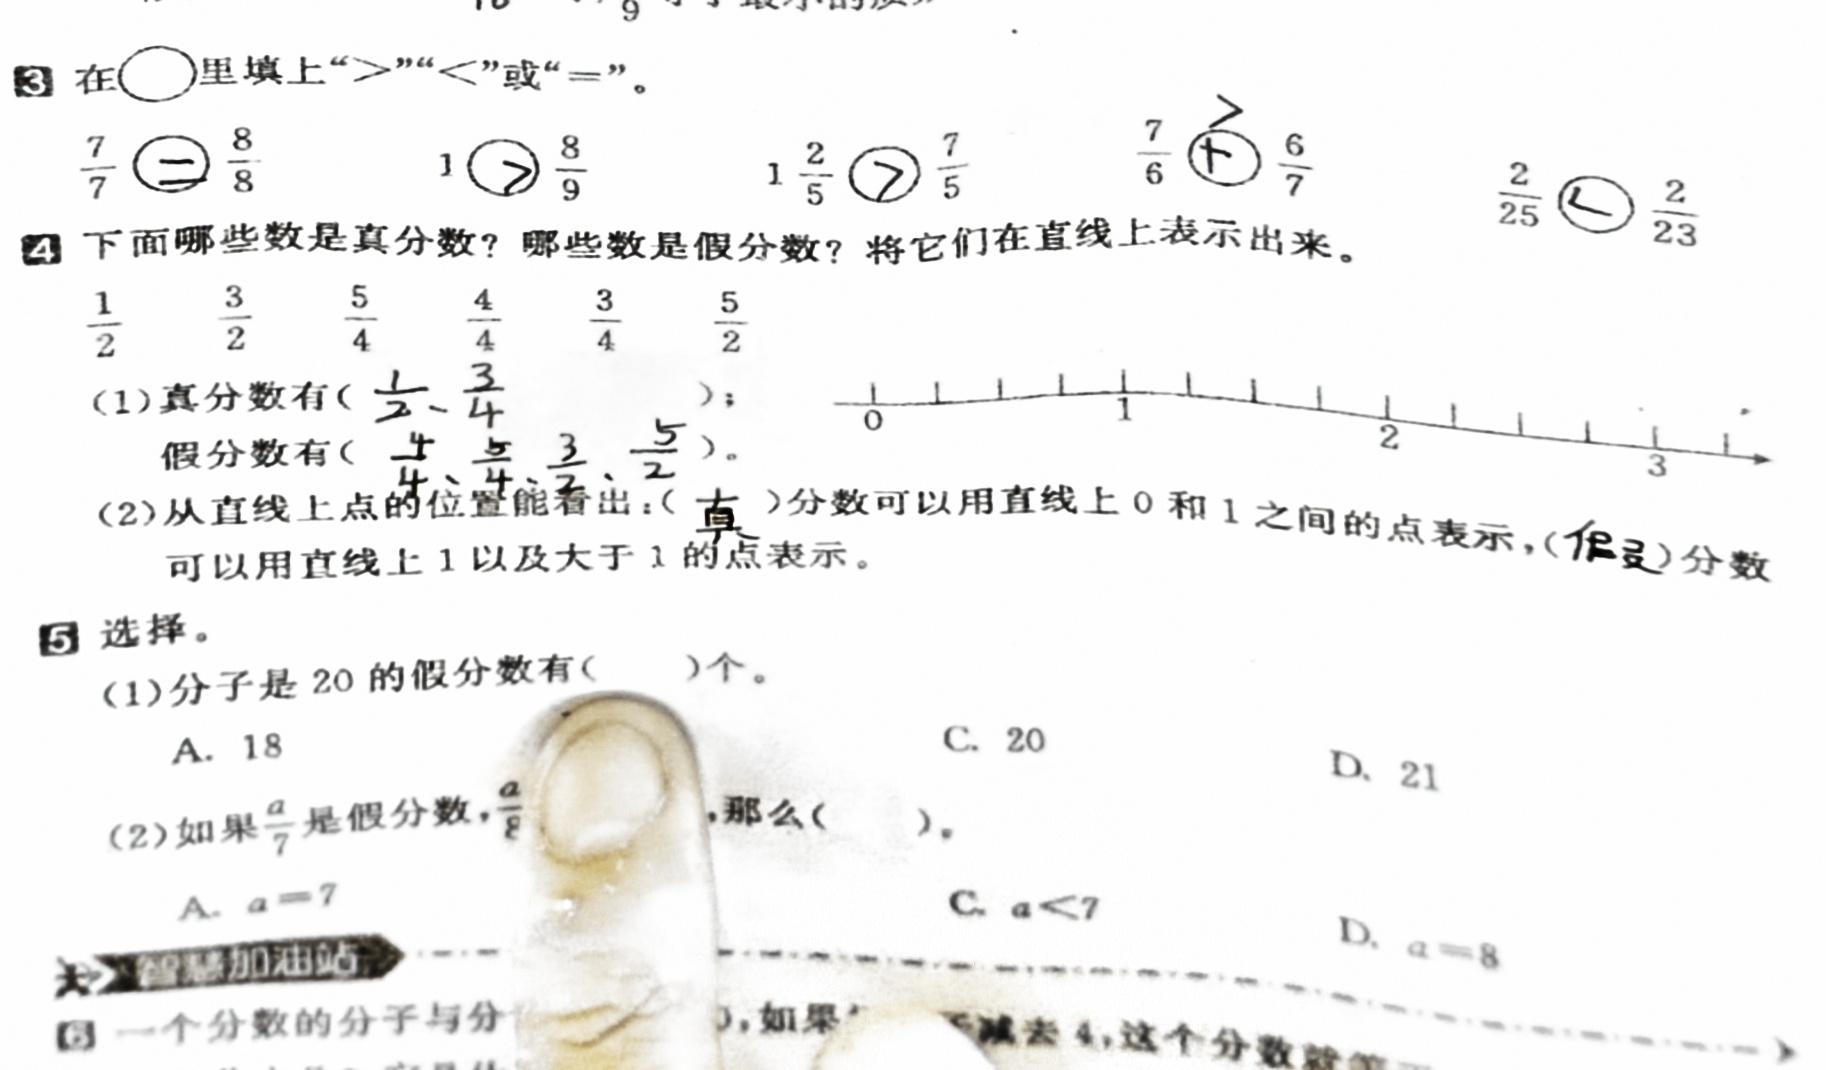 3 在○里填上“>”“<”或“=”。
7/7 = 8/8 1 > 8/9 1 2/5 > 7/5 7/6 > 6/7 2/25 < 2/23
4 下面哪些数是真分数？哪些数是假分数？将它们在直线上表示出来。
1/2 3/2 5/4 4/4 3/4 5/2
(1)真分数有( 1/2、3/4 )；
假分数有( 4/4、5/4、3/2、5/2 )。
0 1 2 3
(2)从直线上点的位置能看出：( 真 )分数可以用直线上 0 和 1 之间的点表示，(假)分数
可以用直线上 1 以及大于 1 的点表示。
5 选择。
(1)分子是 20 的假分数有( )个。
A. 18 C. 20 D. 21
(2)如果a/7是假分数，a/8 ，那么( )。
A. a=7 C. a<7 D. a=8
智慧加油站
6 一个分数的分子与分 ，如果 减去 4，这个分数就